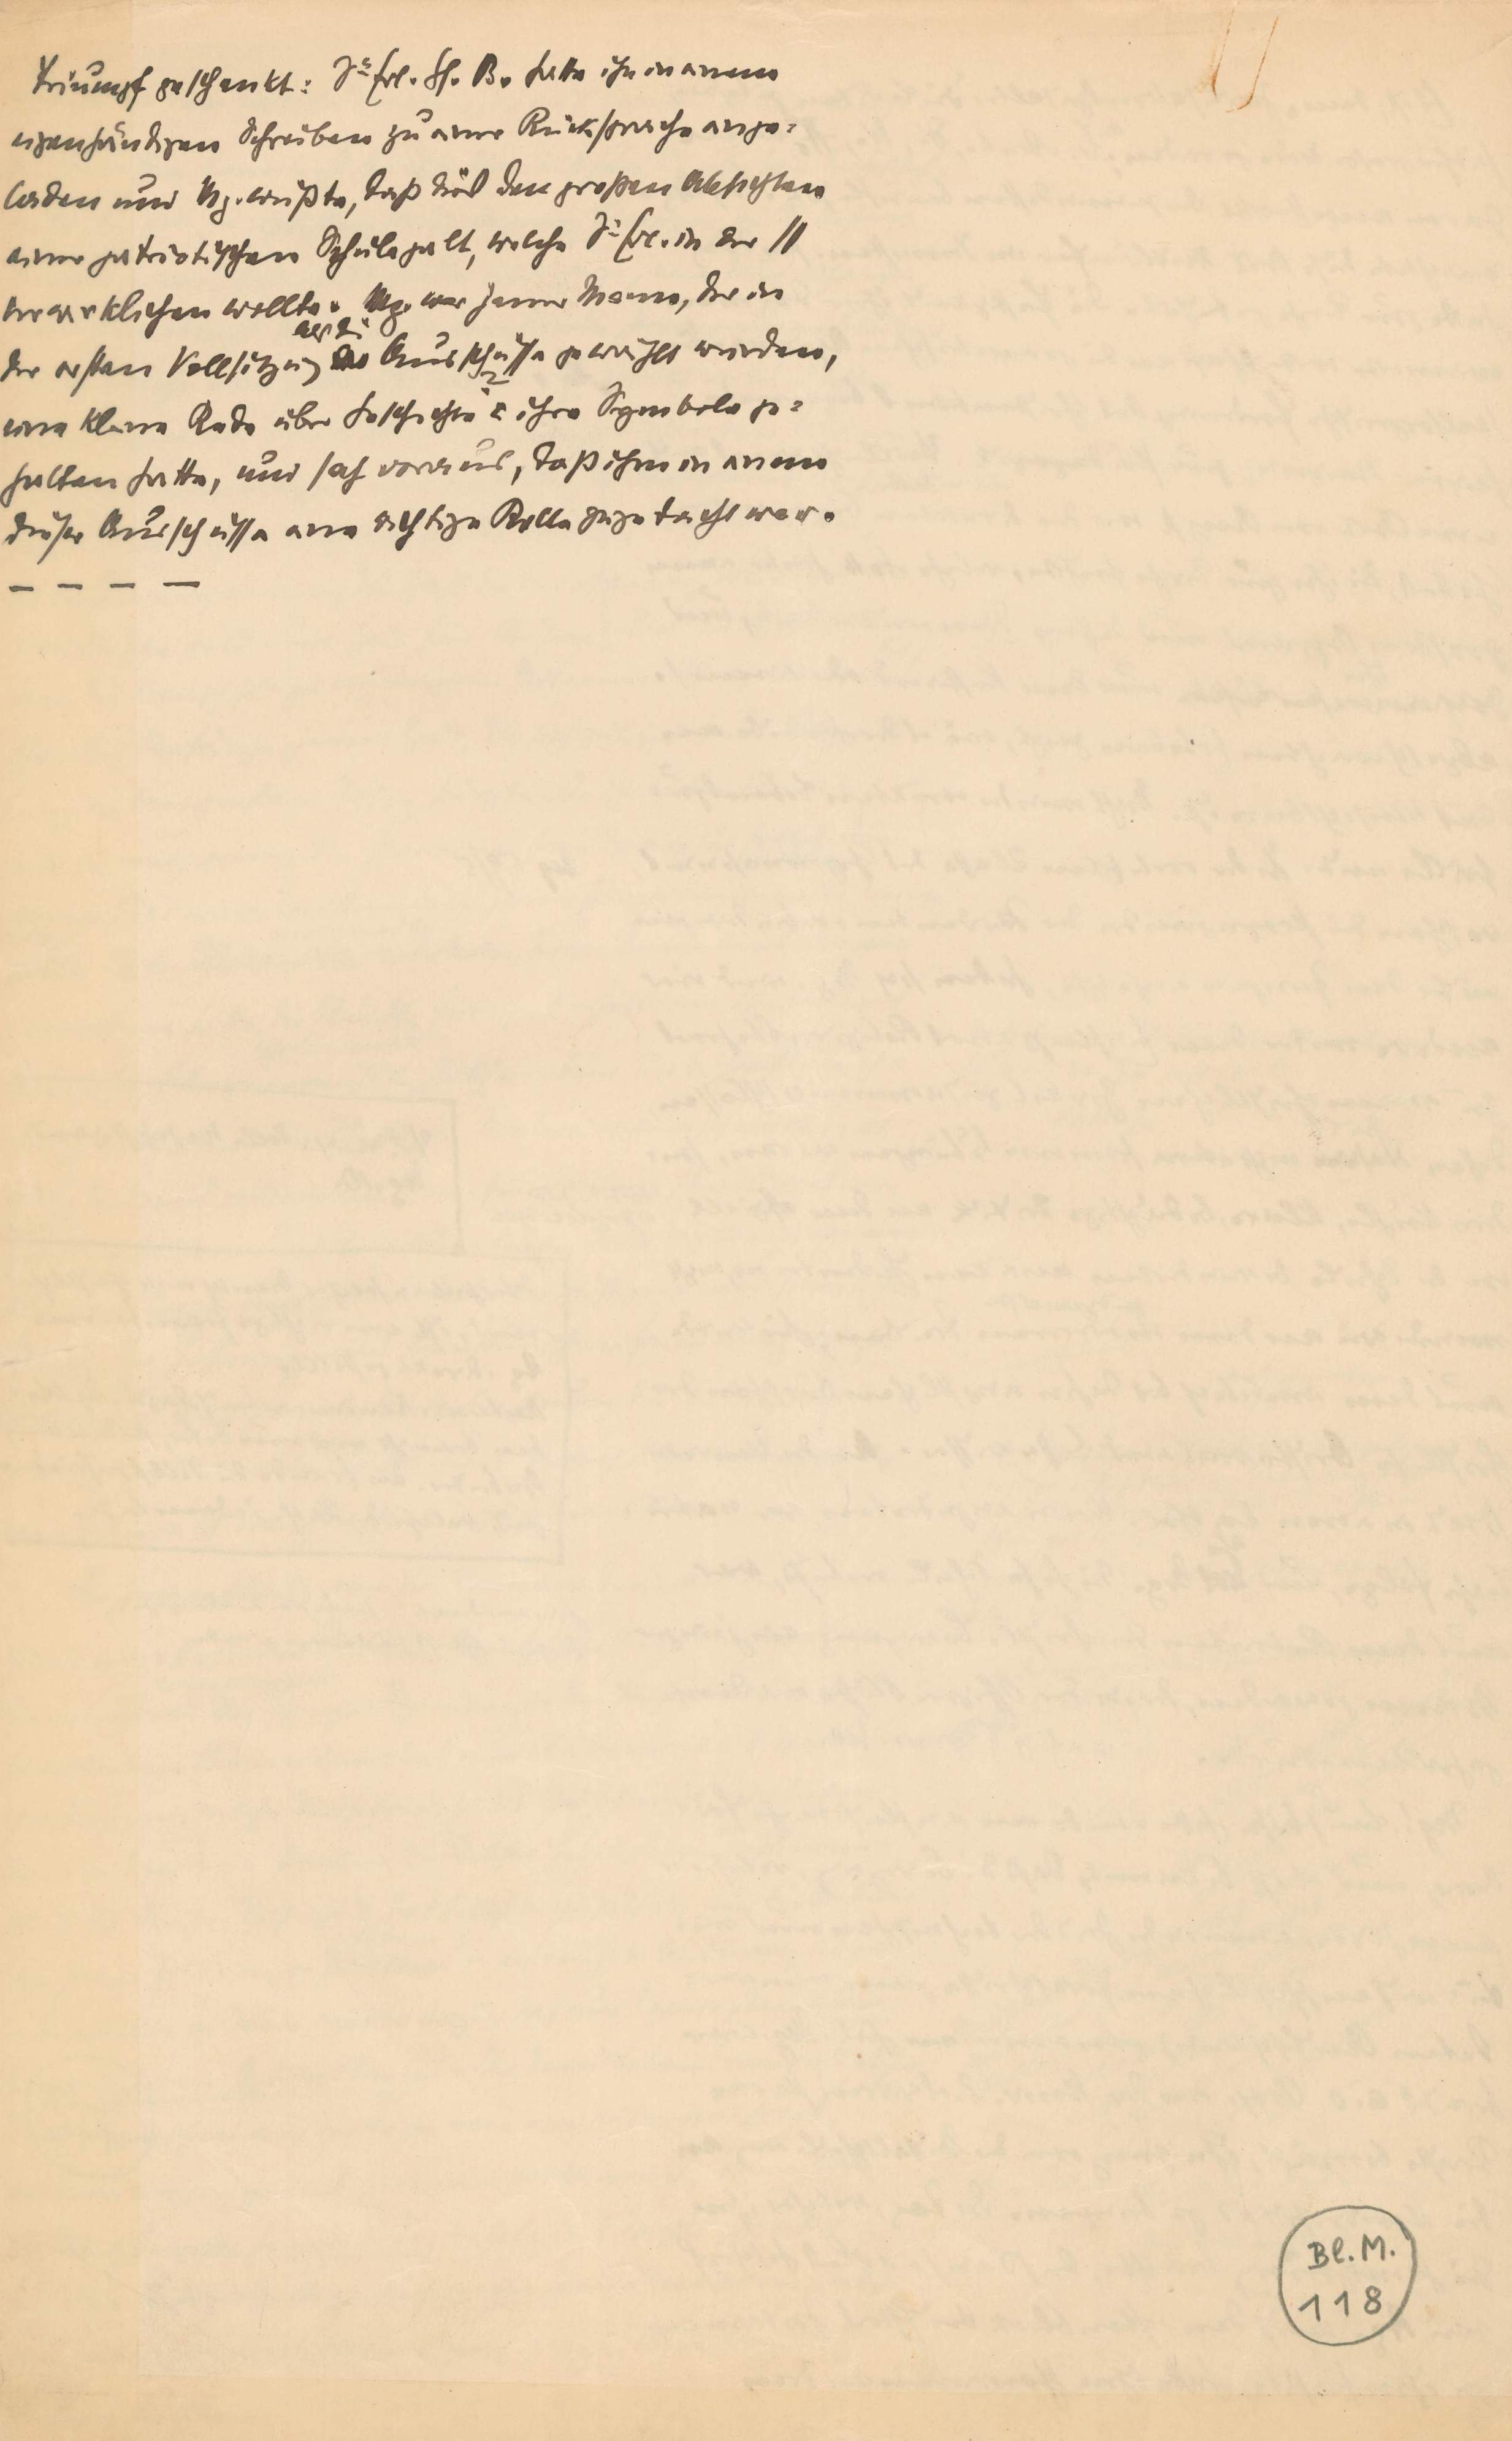 Triumpf geschenkt: Se Erl. Gf. B. hatte ihn in einem
eigenhändigen Schreiben zu einer Rücksprache einge=
laden und Mg. wußte, daß dies den großen Absichten
einer patriotischen Schule galt, welche Se Erl. in der //
verwirklichen wollte. Mg. war jener Mann, der in
der ersten Vollsitzung, als die Ausschüsse gewählt wurden,
eine kleine Rede über Geschichte u ihre Symbole ge=
halten hatte, und sah voraus, daß ihm in einem
dieser Ausschüsse eine wichtige Rolle zugedacht war.
– – – –
Bl. M.
118